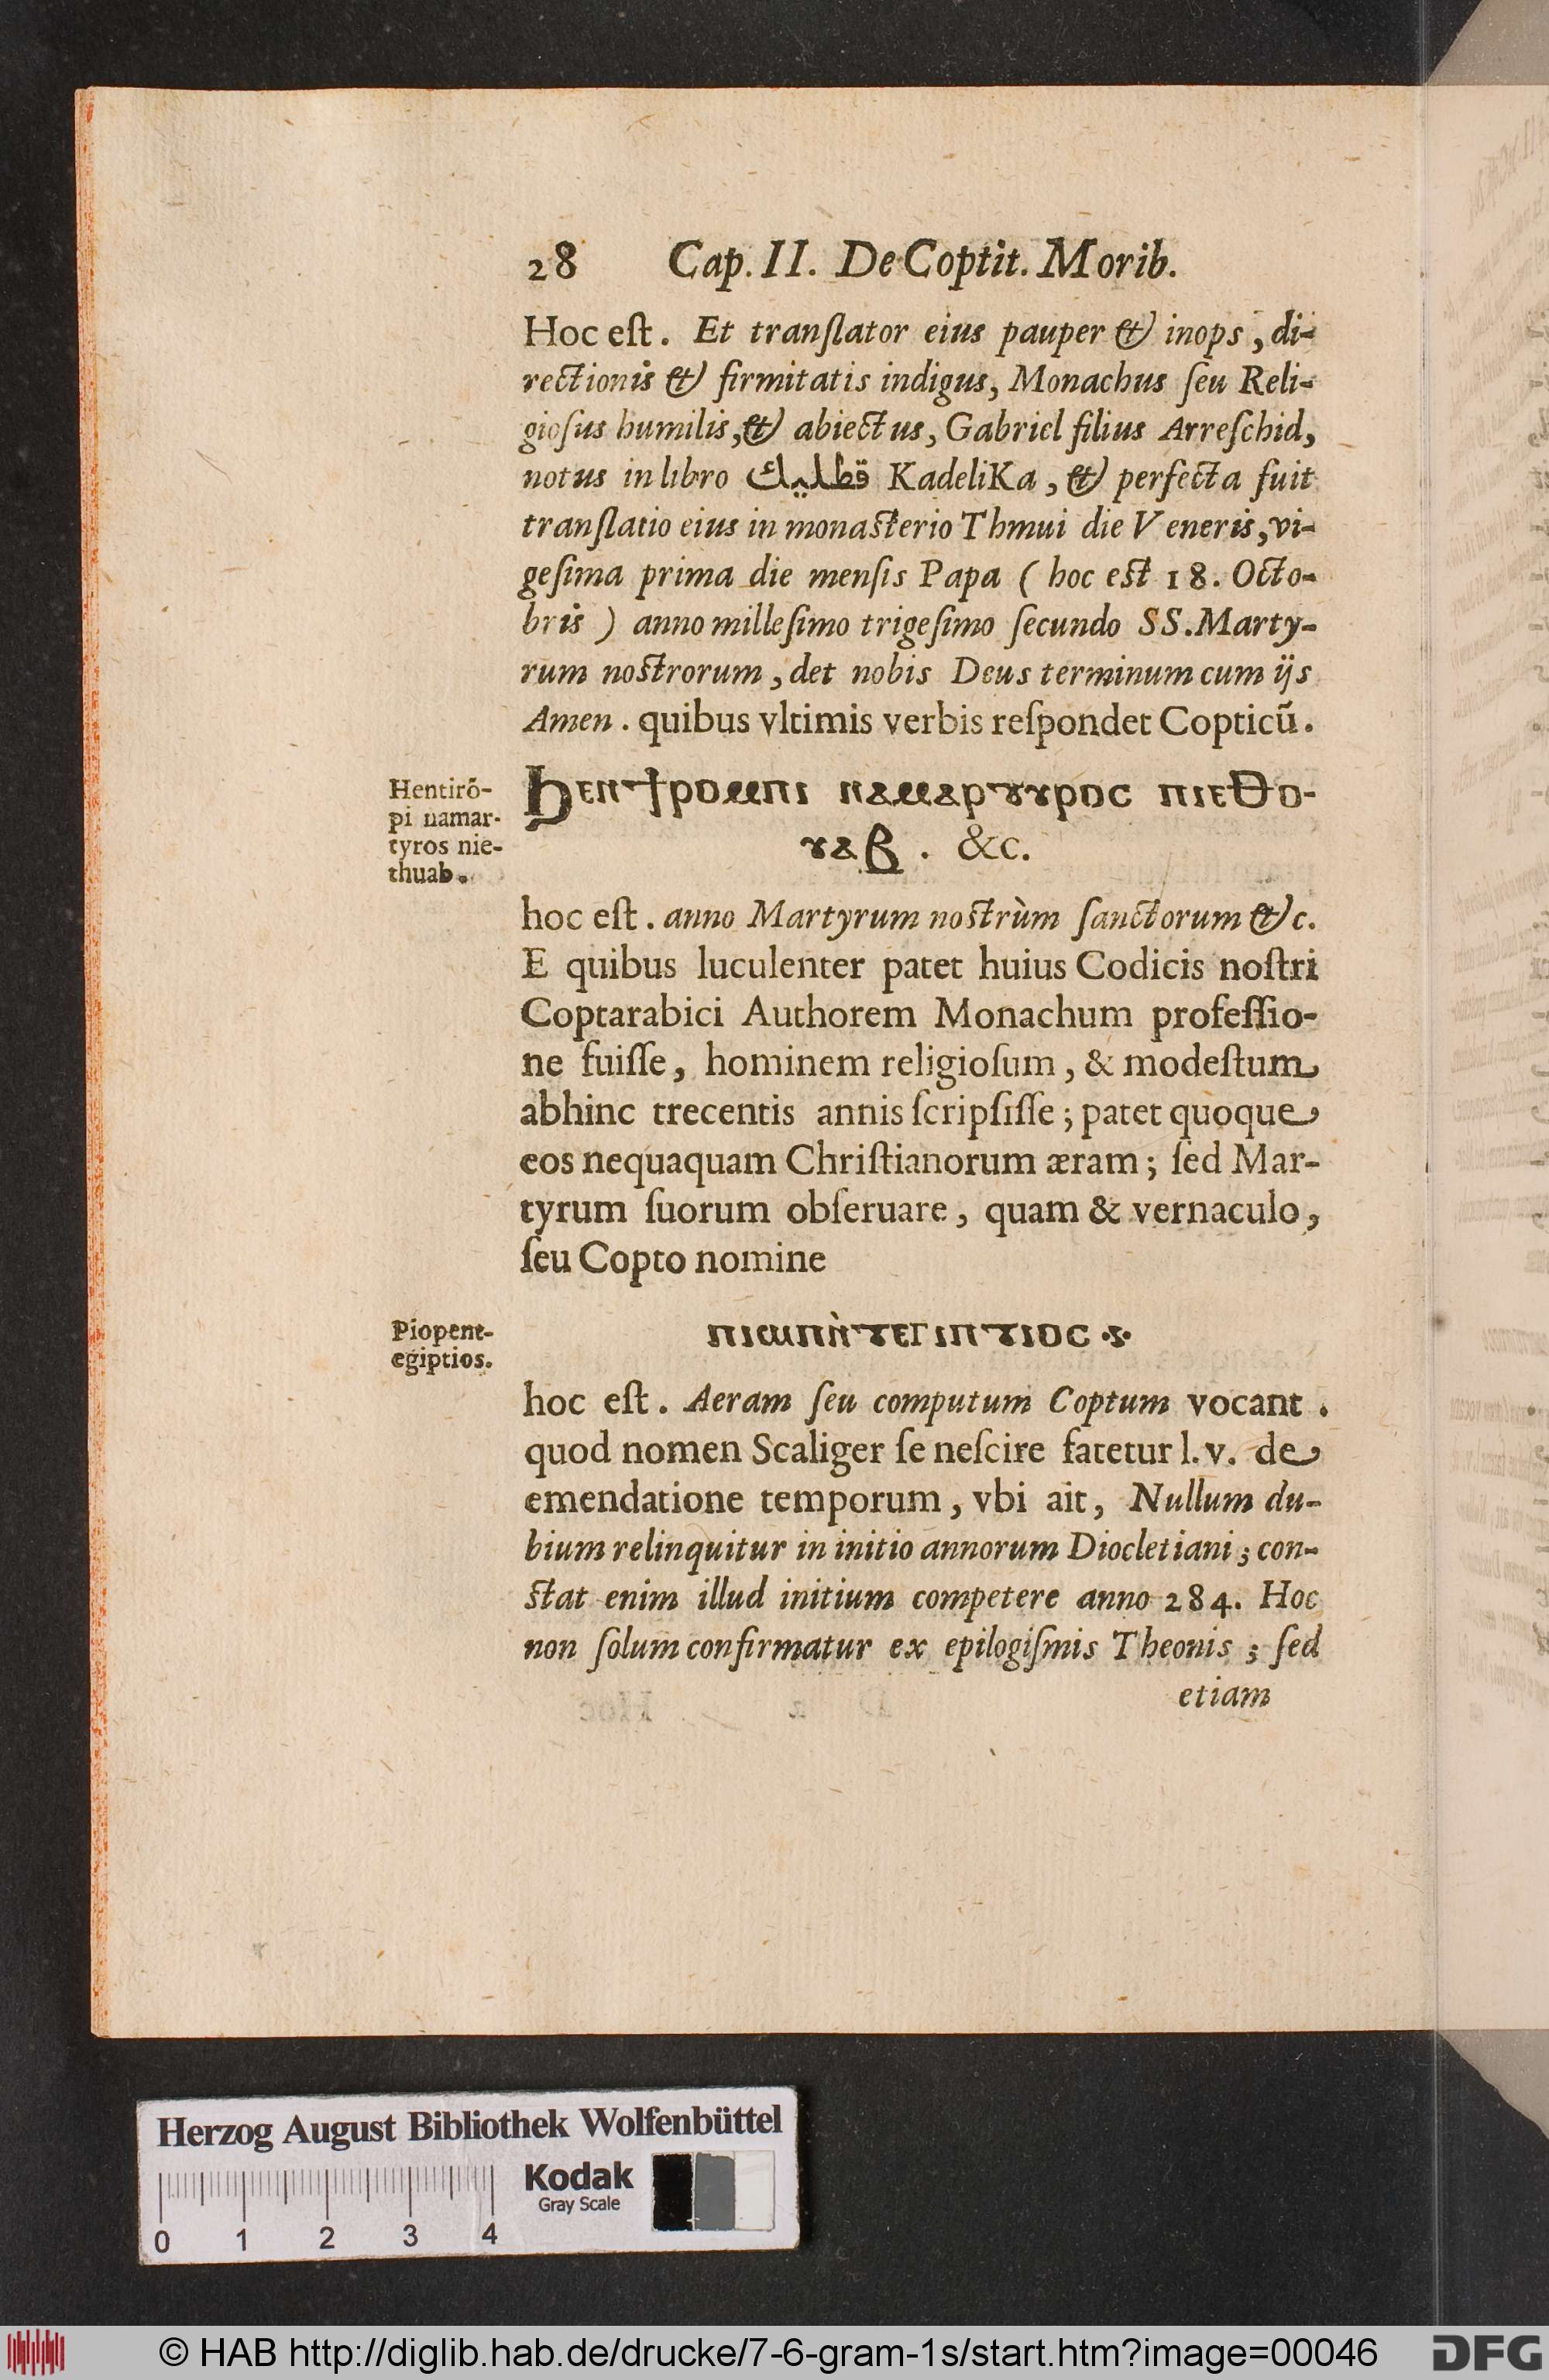 28 Cap. II. De Coptit. Morib.
Hoc eſt. Et tranſlator eius pauper & inops, di-
rectionis & firmitatis indigus, Monachus ſeu Reli-
gioſus humilis, & abiectus, Gabriel filius Arreſchid,
notus in libro قطليك KadeliKa, & perfecta fuit
tranſlatio eius in monasterio Thmui die Veneris, vi-
geſima prima die menſis Papa ( hoc est 18. Octo-
bris ) anno milleſimo trigeſimo ſecundo SS. Marty-
rum nostrorum, det nobis Deus terminum cum ijs
Amen. quibus vltimis verbis reſpondet Copticũ.
Hentirõ-
pi namar-
tyros nie-
thuab.
Ϧⲉⲛϯⲣⲟⲙⲡⲓ ⲛⲁⲙⲁⲣⲧⲩⲣⲟⲥ ⲛⲓⲉⲑⲟ-
ⲩⲁⲃ. &c.
hoc eſt. anno Martyrum nostrùm ſanctorum &c.
E quibus luculenter patet huius Codicis noſtri
Coptarabici Authorem Monachum profeſſio-
ne fuiſſe, hominem religioſum, & modeſtum
abhinc trecentis annis ſcripſiſſe; patet quoque
eos nequaquam Chriſtianorum æram; ſed Mar-
tyrum ſuorum obſeruare, quam & vernaculo,
ſeu Copto nomine
Piopent-
egiptios.
ⲡⲓⲱⲡⲛ̀ⲧⲉⲅⲓⲡⲧⲓⲟⲥ
hoc eſt. Aeram ſeu computum Coptum vocant.
quod nomen Scaliger ſe neſcire fatetur l. v. de
emendatione temporum, vbi ait, Nullum du-
bium relinquitur in initio annorum Diocletiani; con-
stat enim illud initium competere anno 284. Hoc
non ſolum confirmatur ex epilogiſmis Theonis; ſed
etiam
Herzog August Bibliothek Wolfenbüttel
Kodak
Gray Scale
0 1 2 3 4
© HAB http://diglib.hab.de/drucke/7-6-gram-1s/start.htm?image=00046
DFG